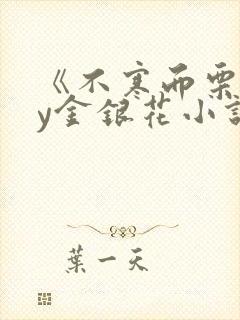 《不寒而栗
y金银花小说
葉一天